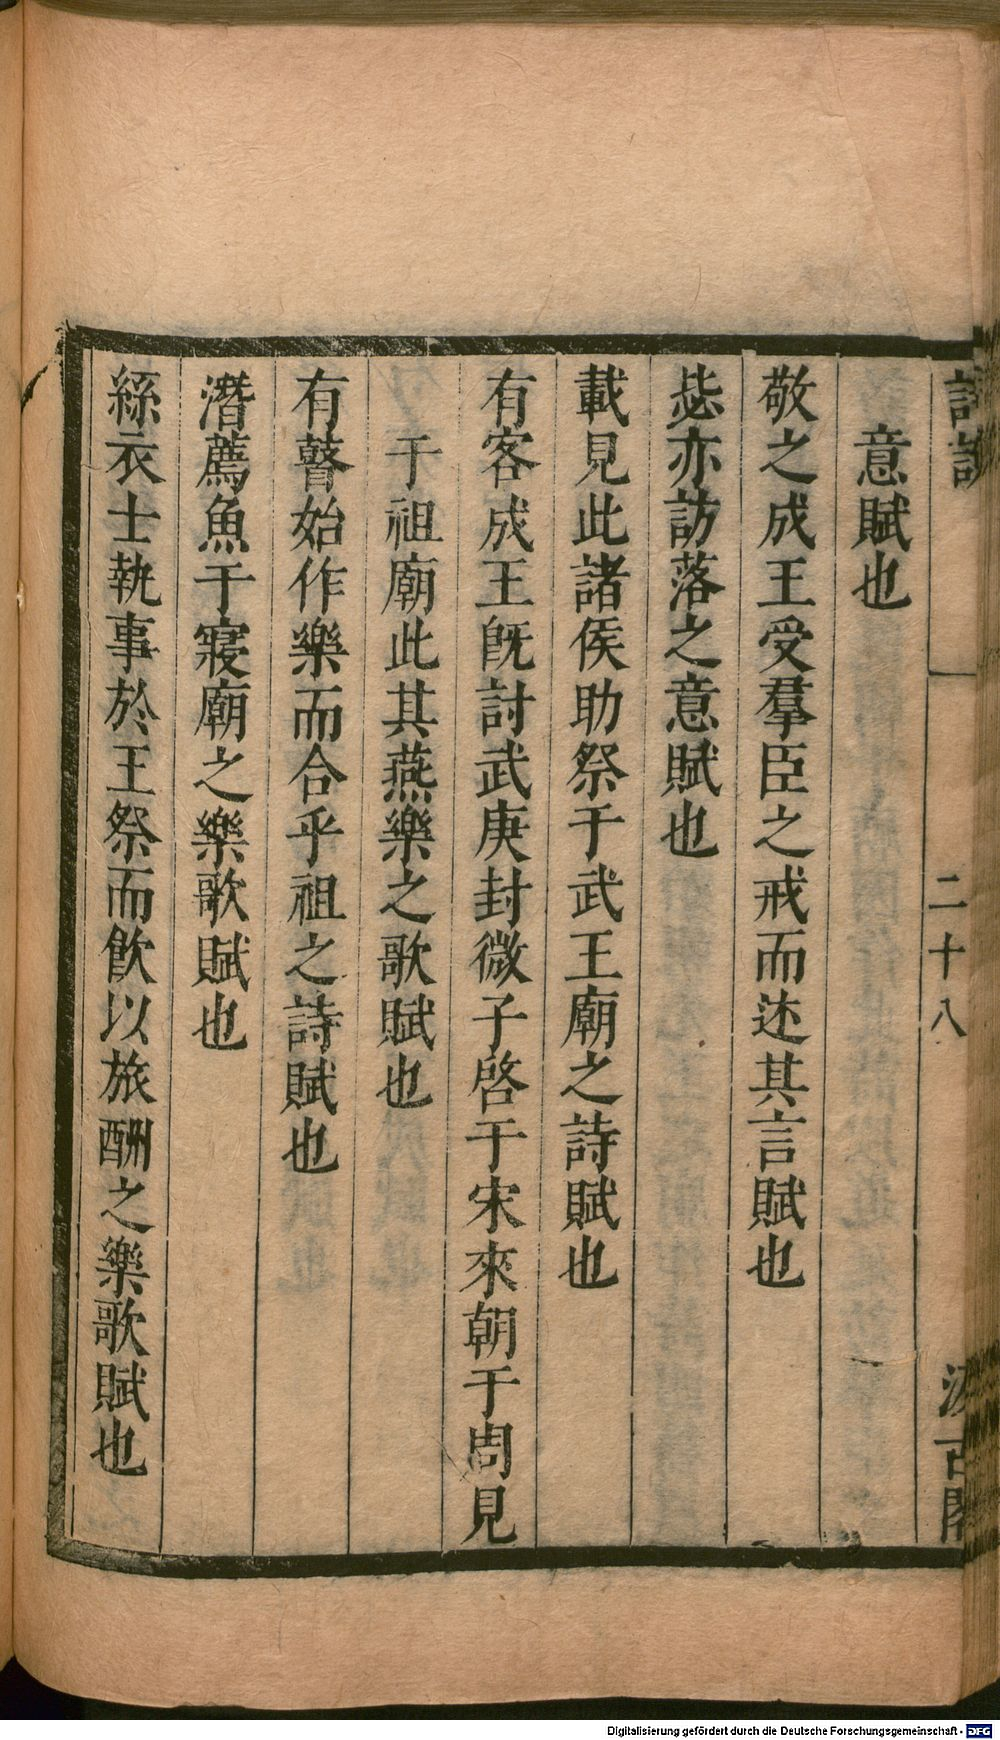 詩說
二十八
汲古閣
意賦也
敬之成王受羣臣之戒而述其言賦也
毖亦訪落之意賦也
載見此諸侯助祭于武王廟之詩賦也
有客成王旣討武庚封微子啓于宋來朝于周見
于祖廟此其燕樂之歌賦也
有瞽始作樂而合乎祖之詩賦也
潛薦魚于寢廟之樂歌賦也
絲衣士執事於王祭而飮以旅酬之樂歌賦也
Digitalisierung gefördert durch die Deutsche Forschungsgemeinschaft - DFG